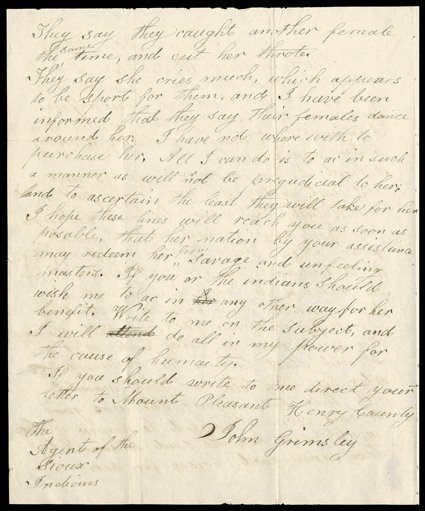 They say they caught another female
the same time, and cut her throte.
They say she cries much, which appears
to be sport for them, and I have been
informed that they say their females dance
around her. I have not where with to
purchase her. All I can do is to ac in such
a manner as will not be prejudicial to her;
and to ascertain the least they will take for her
I hope these lines will reach you as soon as
posable, that her nation by your assistance
may redeem her from savage and unfeeling
masters. If you or the indians should
wish me to ac in her any other way for her
benefit. Write to me on the subject, and
I will attend do all in my power for
the cause of humaty.
If you should write to me direct your
letter to Mount Pleasant Henry County
John Grimsley
The
Agent of the
Sioux
Indians